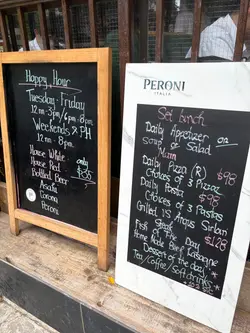 Happy Hour
Tuesday - Friday
12nn - 3pm / 6pm - 8pm
Weekends & PH
12nn - 8pm
House White
House Red
Bottled Beer
Asahi
Corona
Peroni
only
$35
PERONI
ITALIA
Set Lunch
Daily Appetizer
or
Soup of Salad
Main
Daily Pizza (R) $98
Choices of 3 Pizzas
Daily Pasta $98
Choices of 3 Pastas
Grilled US Angus Sirloin
Steak $128
Fish of the Day
Home Made Beef Lasagne
Dessert of the day
Tea/Coffee/Soft drinks